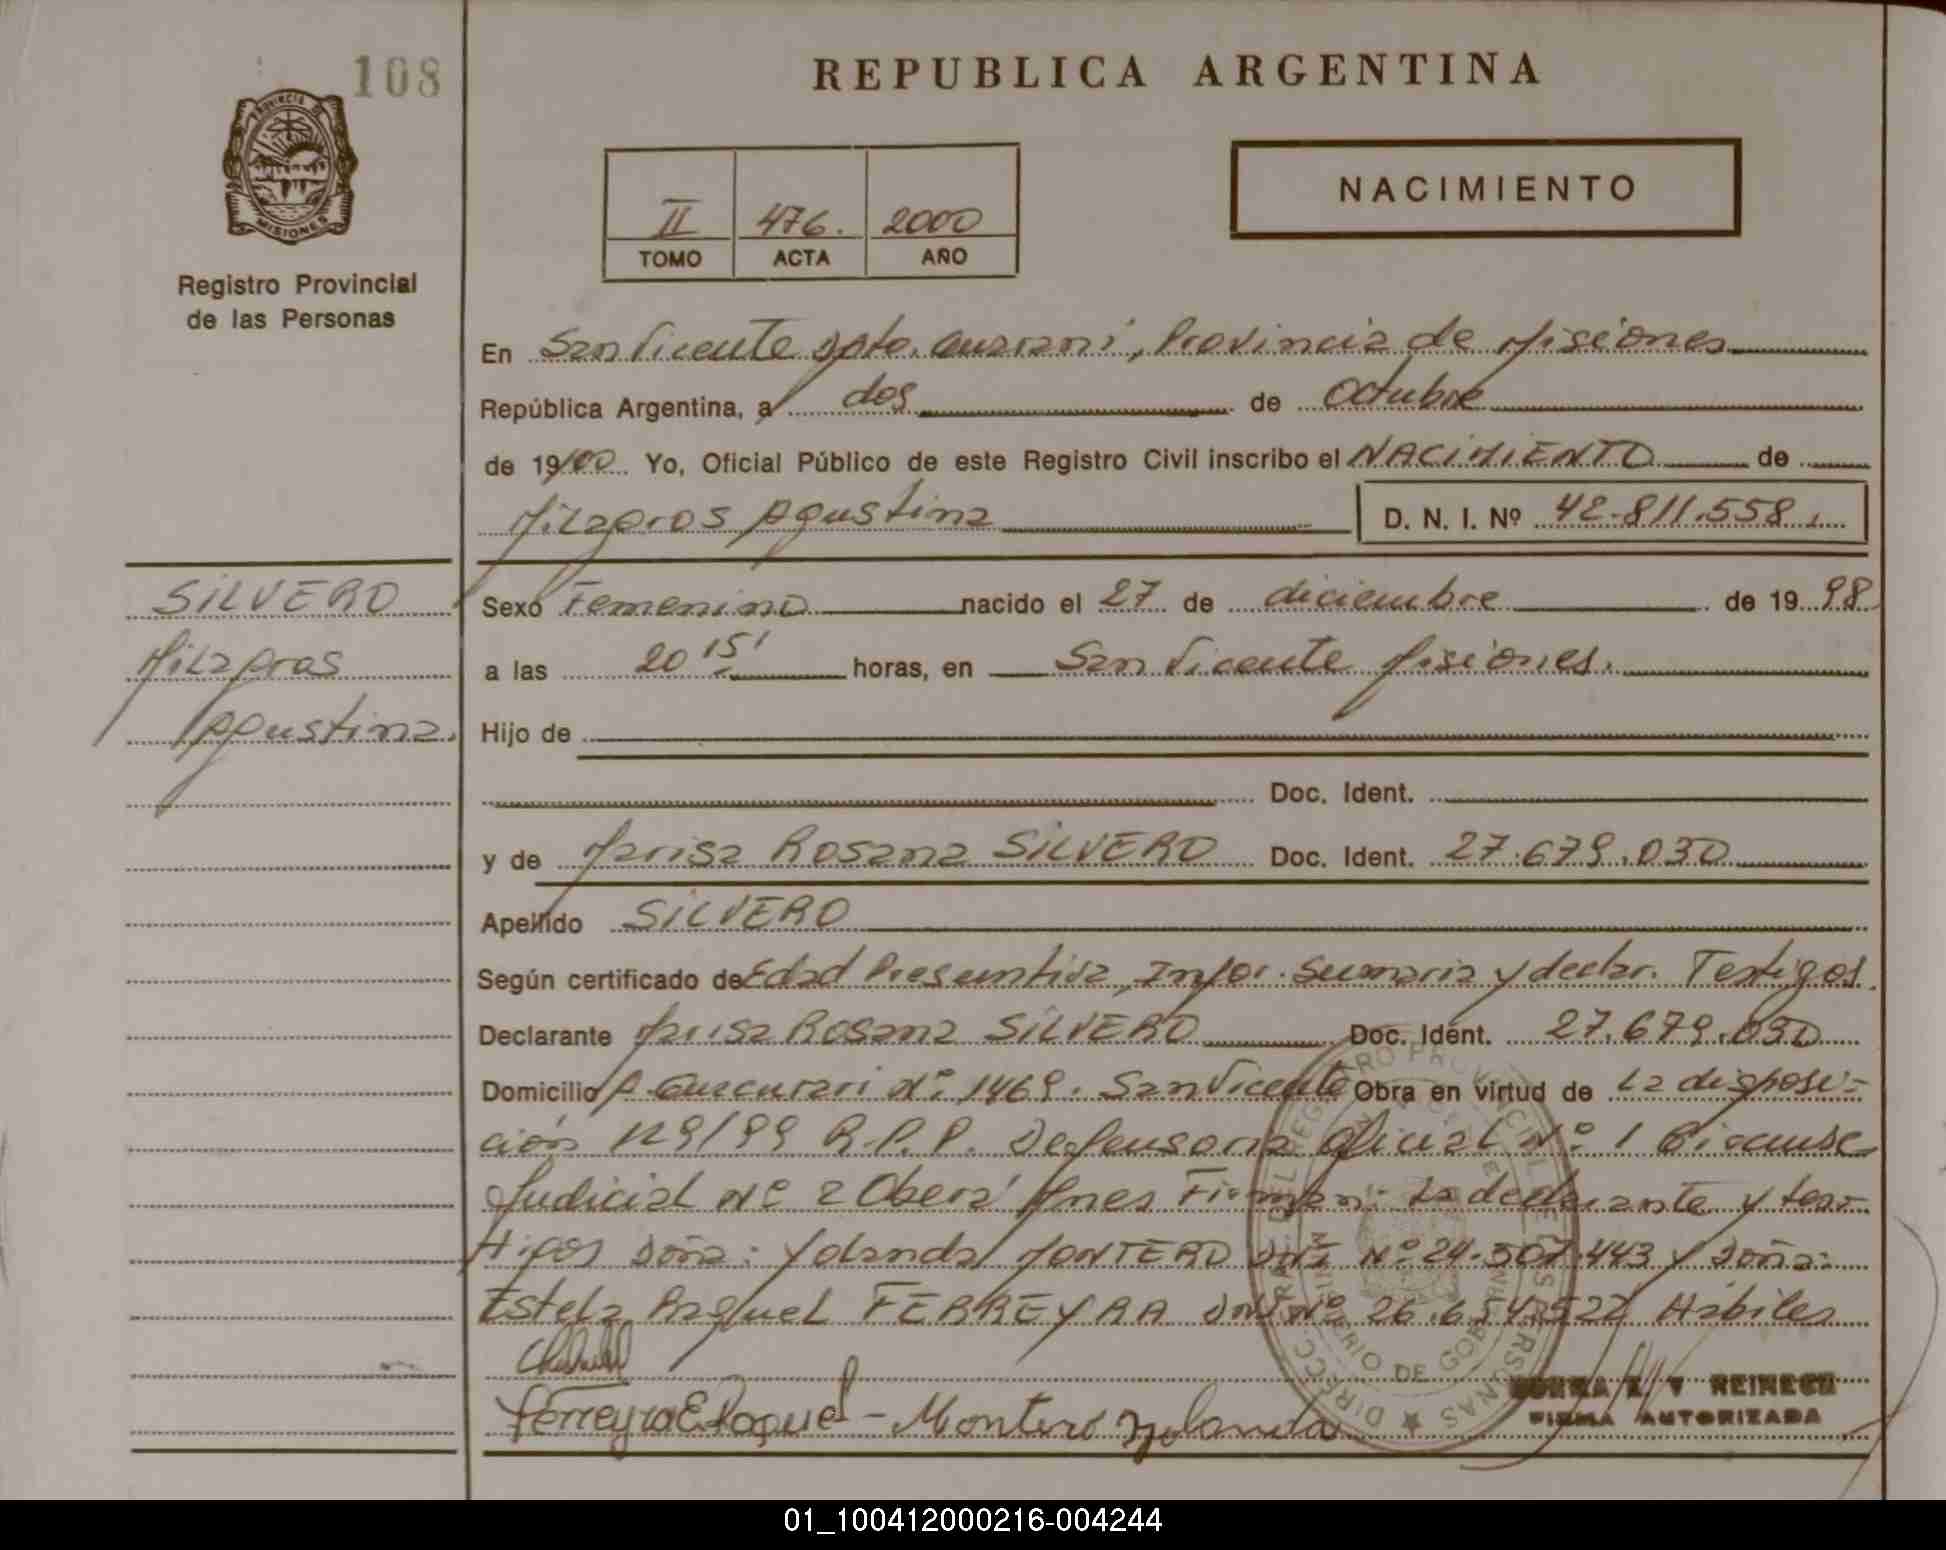 108
REPUBLICA ARGENTINA
PROVINCIA DE
MISIONES
Registro Provincial
de las Personas
II 476. 2000
TOMO ACTA AÑO
NACIMIENTO
En San Vicente Dpto. Guaraní, Provincia de Misiones
República Argentina, a dos de Octubre
de 19/00 Yo, Oficial Público de este Registro Civil inscribo el NACIMIENTO de
Milagros Agustina D. N. I. Nº 42.811.558.
SILVERO
Milagros
Agustina.
Sexo Femenino nacido el 27 de diciembre de 19 98
a las 20 15' horas, en San Vicente Misiones.
Hijo de
Doc. Ident.
y de Marisa Rosana SILVERO Doc. Ident. 27.679.030
Apellido SILVERO
Según certificado de Edad Presuntiva, Infor. Sumaria y declar. Testigos.
Declarante Marisa Rosana SILVERO Doc. Ident. 27.679.030
Domicilio A. Guacurari Nº 1469. San Vicente Obra en virtud de la disposi-
ción 129/99 R.P.P. Defensoria Oficial Nº 1 Circunsc
Judicial Nº 2 Oberá Mnes Firman: La declarante y tes-
tigos Doña: Yolanda MONTERO DNI Nº 24.507.443 y Doña:
Estela Raquel FERREYRA DNI Nº 26.654.522 Hábiles
Ferreyra E Raquel - Montero Yolanda
REINECK
FIRMA AUTORIZADA
DIRECC. GRAL. DEL REGISTRO PROVINCIAL DE LAS PERSONAS
MINISTERIO DE GOBIERNO
01_100412000216-004244